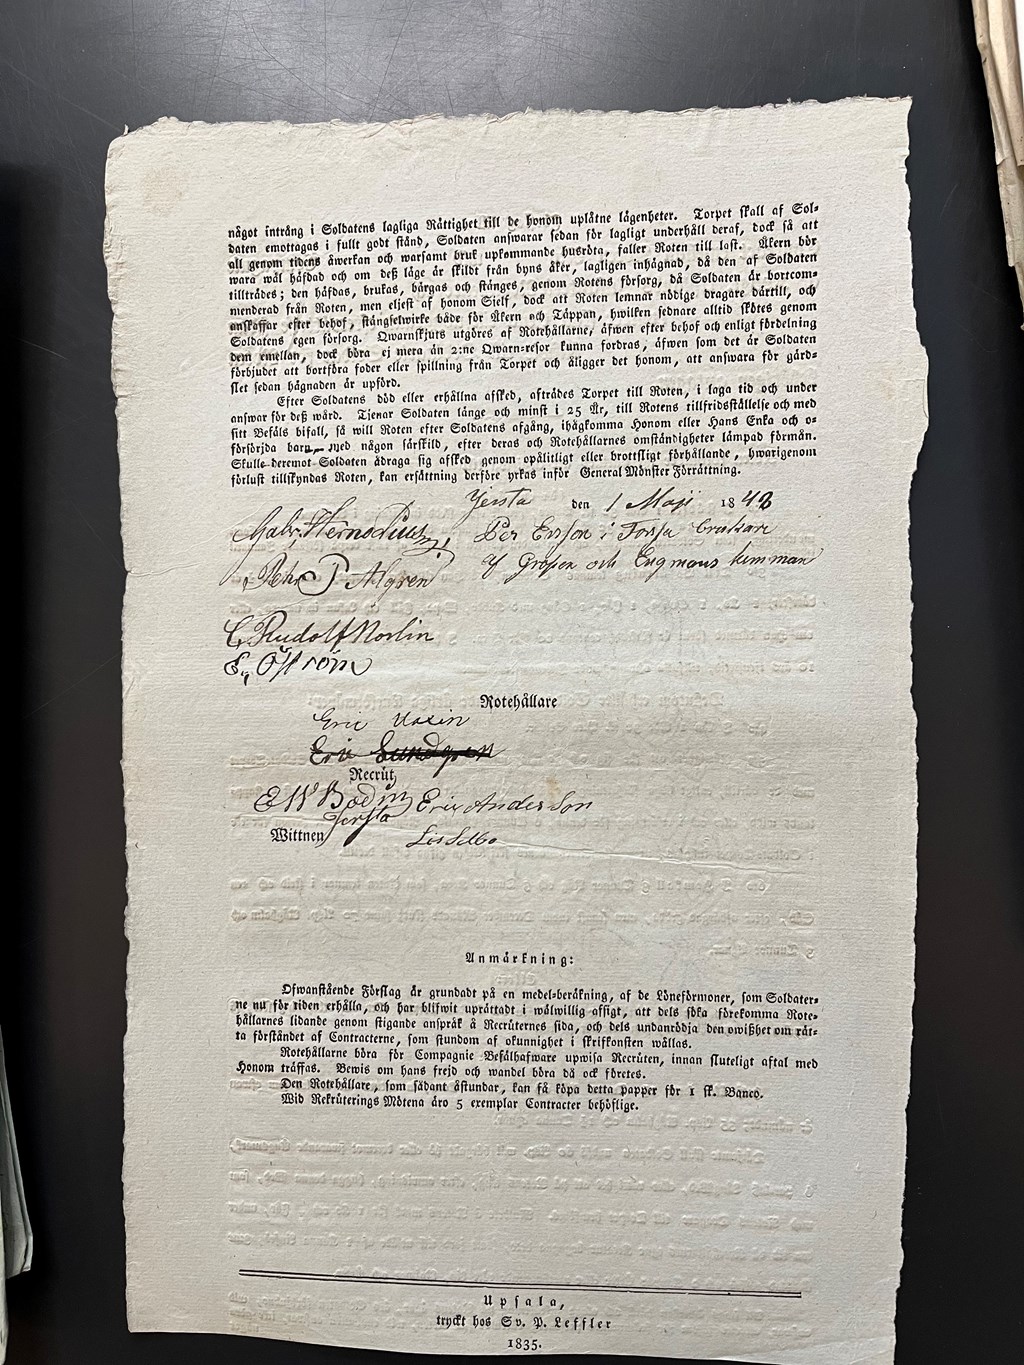 något intrång i Soldatens lagliga Råttighet till de honom uplåtne lågenheter. Torpet skall af Sol-
daten emottagas i fullt godt stånd, Soldaten answarar sedan för lagligt underhåll deraf, dock så att
all genom tidens åwerkan och warsamt bruk upkommande husröta, faller Roten till last. Åkern bör
wara wål håfdad och om deß låge år skildt från byns åker, lagligen inhågnad, då den af Soldaten
tilltrådes; den håfdas, brukas, bårgas och stånges, genom Rotens försorg, då Soldaten år bortcom-
menderad från Roten, men eljest af honom Sielf, dock att Roten lemnar nödige dragare dårtill, och
anskaffar efter behof, stångselwirke både för Åkern och Tåppan, hwilken sednare alltid skötes genom
Soldatens egen försorg. Qwarnskjuts utgöres af Rotehållarne, åfwen efter behof och enligt fördelning
dem emellan, dock böra ej mera ån 2:ne Qwarn-resor kunna fordras, åfwen som det år Soldaten
förbjudet att bortföra foder eller spillning från Torpet och åligger det honom, att answara för gård-
slet sedan hågnaden år upförd.
Efter Soldatens död eller erhållna afsked, aftrådes Torpet till Roten, i laga tid och under
answar för deß wård. Tjenar Soldaten långe och minst i 25 År, till Rotens tillfridsstållelse och med
sitt Befåls bifall, så will Roten efter Soldatens afgång, ihågkomma Honom eller Hans Enka och o-
försörjda barn, med någon sårskild, efter deras och Rotehållarnes omståndigheter låmpad förmån.
Skulle deremot Soldaten ådraga sig afsked genom opålitligt eller brottsligt förhållande, hwarigenom
förlust tillskyndas Roten, kan ersåttning derföre yrkas inför General Mönster Förråttning.
Jersta den 1 Maji 1843
Gabr. Hernodius, Per Ersson i Forssa brukare
Pehr P Algren af Gropen och Engmans hemman
C. Rudolf Norlin
E, Öström
Rotehållare
Eric
Eric Sundgren
Recrut,
E W Bodin Eric Anderson
Jersta
Wittnen Lisselbo
Anmårkning:
Ofwanstående Förslag år grundadt på en medel-beråkning, af de Löneförmoner, som Soldater-
ne nu för tiden erhålla, och har blifwit upråttadt i wålwillig afsigt, att dels söka förekomma Rote-
hållarnes lidande genom stigande anspråk å Recruternes sida, och dels undanrödja den owißhet om råt-
ta förståndet af Contracterne, som stundom af okunnighet i skrifkonsten wållas.
Rotehållarne böra för Compagnie Befålhafware upwisa Recruten, innan sluteligt aftal med
Honom tråffas. Bewis om hans frejd och wandel böra då ock företes.
Den Rotehållare, som sådant åstundar, kan få köpa detta papper för 1 sk. Banco.
Wid Rekruterings Mötena åro 5 exemplar Contracter behöflige.
Upsala,
tryckt hos Sv. P. Leffler
1835.